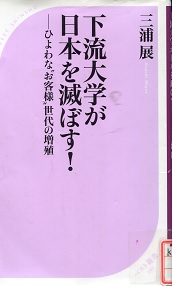 三浦 展
下流大学が
日本を滅ぼす!
――ひよわな“お客様”世代の増殖